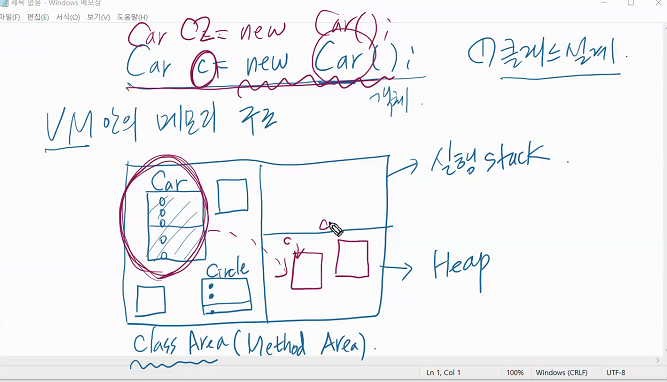 제목 없음 - Windows 메모장
파일(F) 편집(E) 서식(O) 보기(V) 도움말(H)
Car C2 = new Car();
Car c = new Car();
① 클래스 설계.
객체.
VM 안의 메모리 구조
Car
실행 stack.
c
Circle
Heap
Class Area (Method Area).
Ln 1, Col 1 100% Windows (CRLF) UTF-8